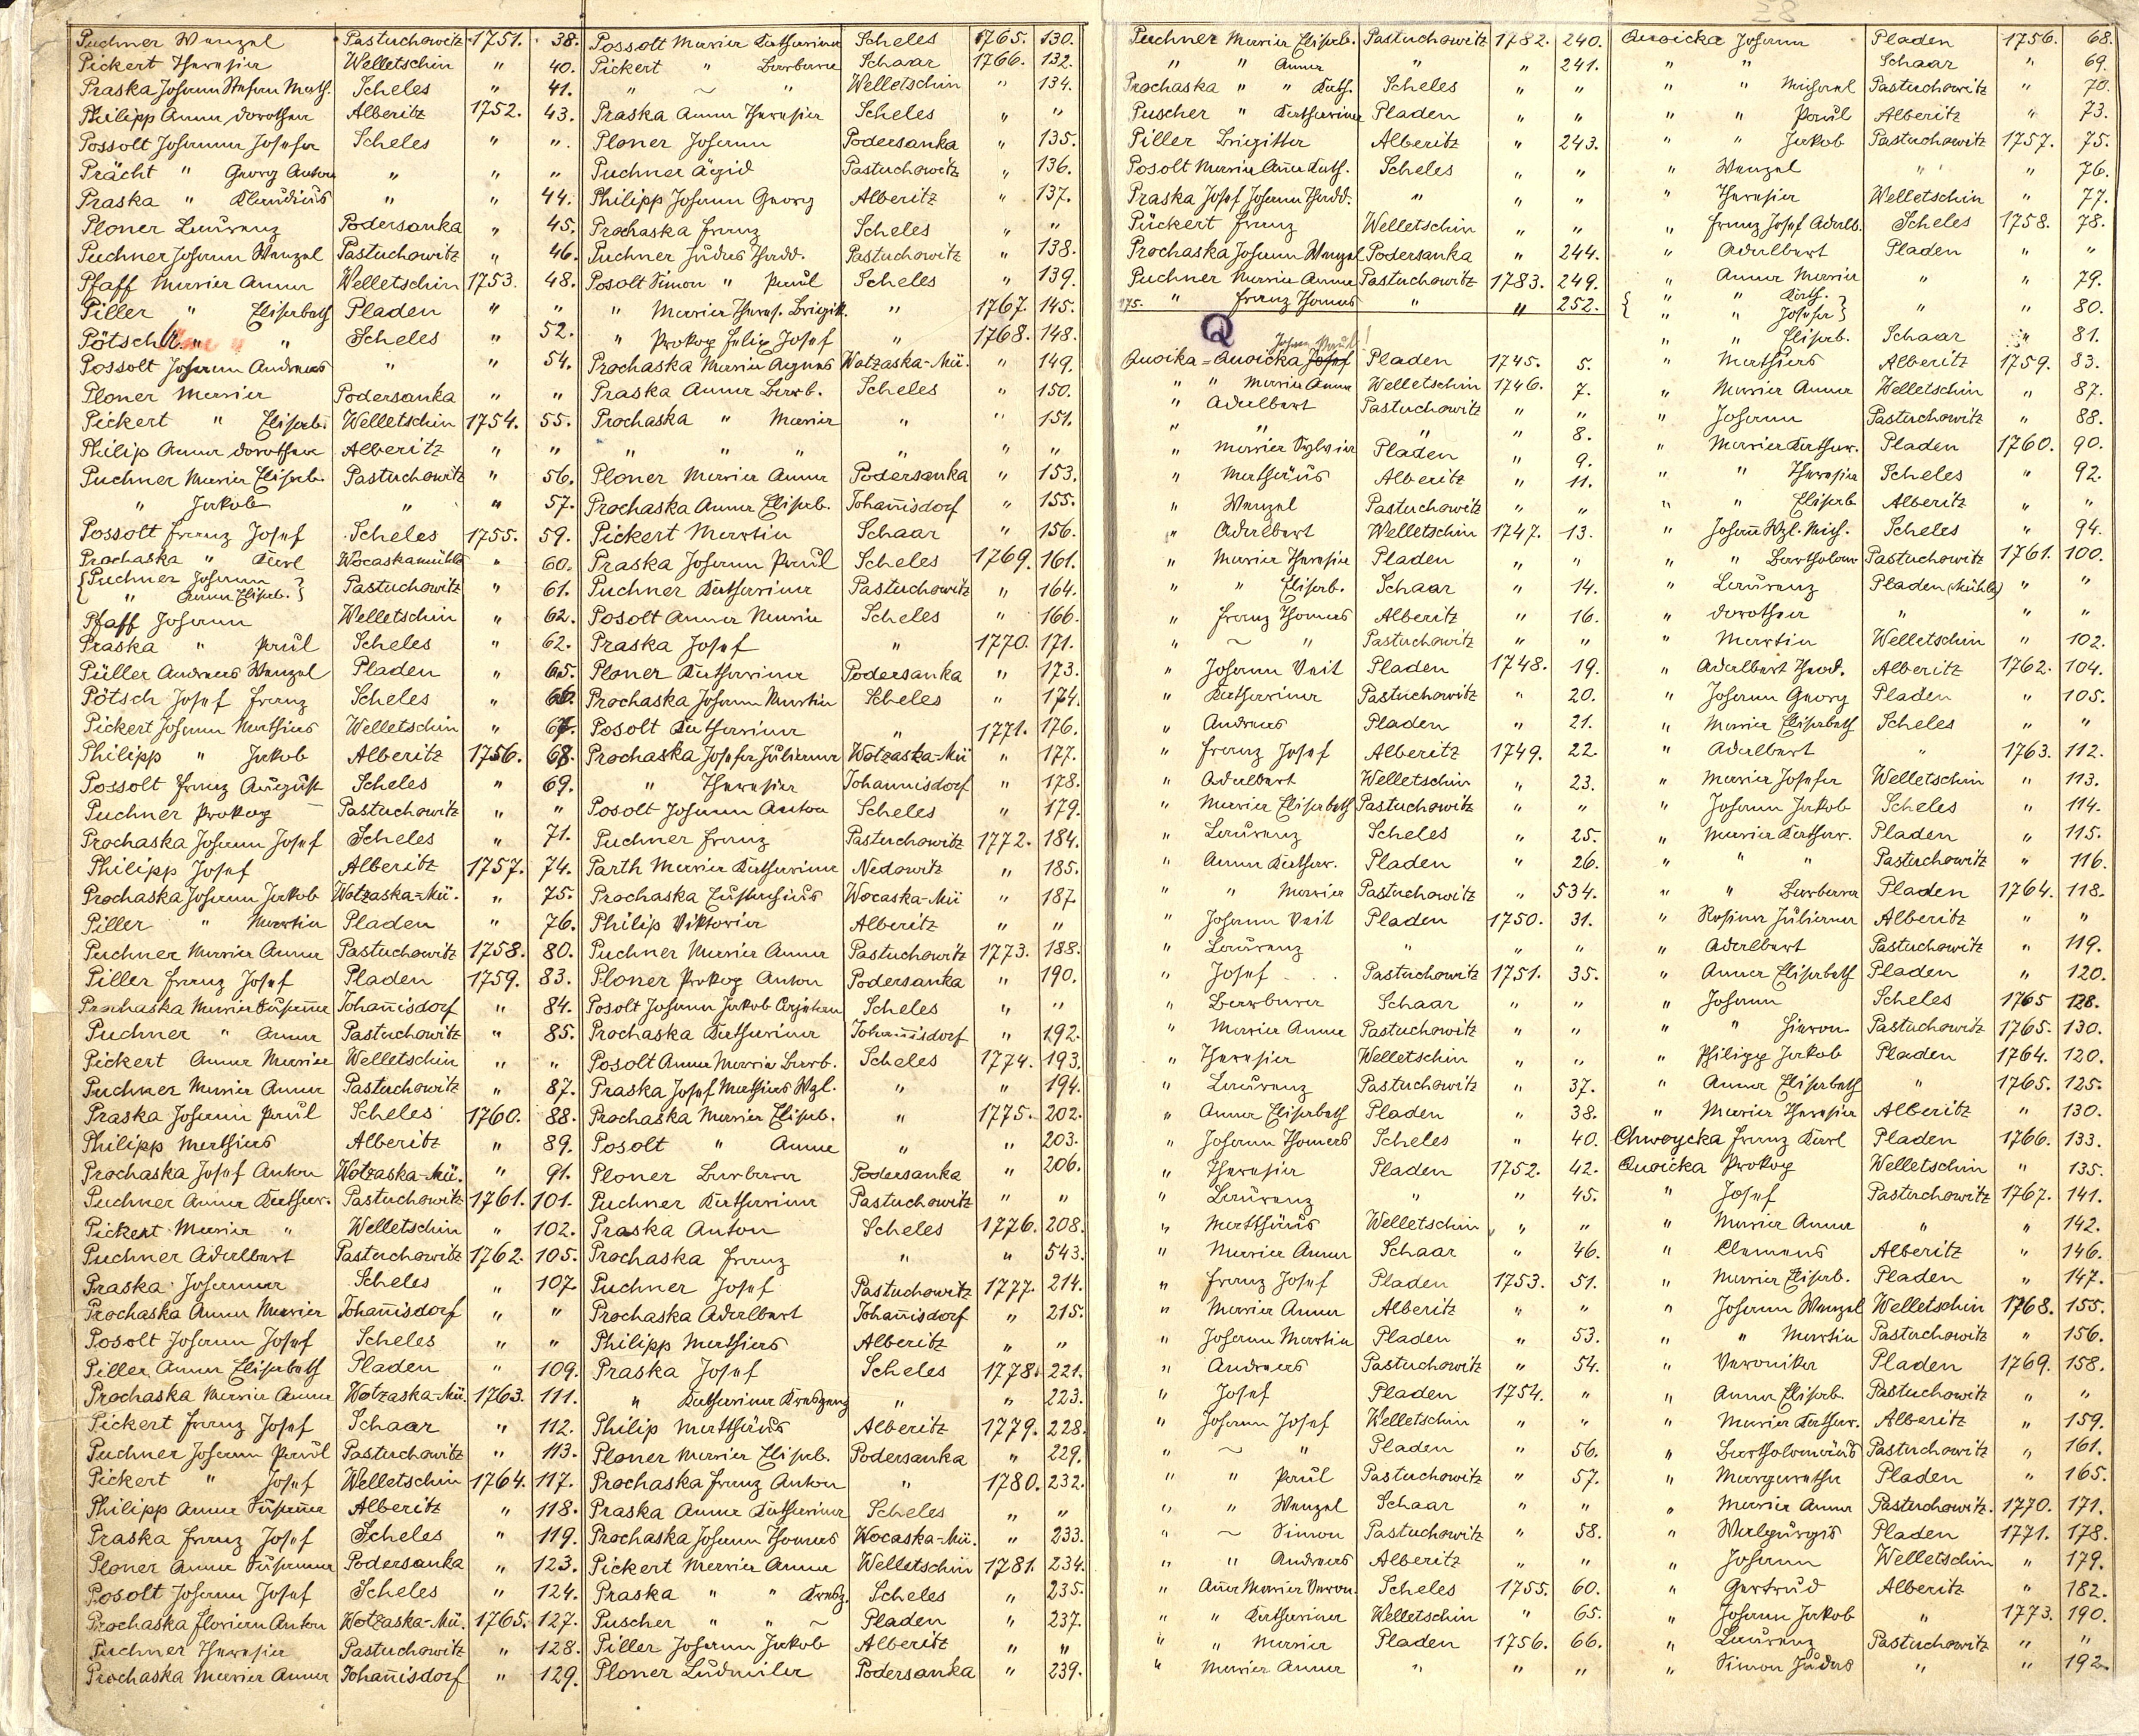 Puchner Wenzel Pastuchowitz 1751. 38.
Pickert Theresia Welletschin " 40.
Praska Johann Stefan Math. Scheles " 41.
Philipp Anna Dorothea Alberitz 1752. 43.
Possolt Johanna Josefa Scheles " ".
Prächt " Georg Anton " " "
Praska " Klaudius " " 44.
Ploner Laurenz Podersanka " 45.
Puchner Johann Wenzel Pastuchowitz " 46.
Pfaff Maria Anna Welletschin 1753. 48.
Piller " Elisabeth Pladen " "
Pötsch " " Scheles " 52.
Possolt Johann Andreas " " 54.
Ploner Maria Podersanka " "
Pickert " Elisab. Welletschin 1754. 55.
Philip Anna Dorothea Alberitz " "
Puchner Maria Elisab. Pastuchowitz " 56.
" Jakob " " 57.
Possolt Franz Josef Scheles 1755. 59.
Prochaska " Karl Wocaskamühle " 60.
{Puchner Johann } Pastuchowitz " 61.
{ " Anna Elisab. }
Pfaff Johann Welletschin " 62.
Praska " Paul Scheles " 62.
Püller Andreas Wenzel Pladen " 65.
Pötsch Josef Franz Scheles " 66.
Pickert Johann Mathias Welletschin " 67.
Philipp " Jakob Alberitz 1756. 68.
Possolt Franz August Scheles " 69.
Puchner Prokop Pastuchowitz " "
Prochaska Johann Josef Scheles " 71.
Philipp Josef Alberitz 1757. 74.
Prochaska Johann Jakob Wotzaska-Mü. " 75.
Piller " Martin Pladen " 76.
Puchner Maria Anna Pastuchowitz 1758. 80.
Piller Franz Josef Pladen 1759. 83.
Prochaska Maria Susan̄a Johan̄isdorf " 84.
Puchner " Anna Pastuchowitz " 85.
Pickert Anna Maria Welletschin " "
Puchner Maria Anna Pastuchowitz " 87.
Praska Johann Paul Scheles 1760. 88.
Philipp Mathias Alberitz " 89.
Prochaska Josef Anton Wotzaska-Mü. " 91.
Puchner Anna Kathar. Pastuchowitz 1761. 101.
Pickert Maria " Welletschin " 102.
Puchner Adalbert Pastuchowitz 1762. 105.
Praska Johanna Scheles " 107.
Prochaska Anna Maria Johan̄isdorf " "
Posolt Johann Josef Scheles " "
Piller Anna Elisabeth Pladen " 109.
Prochaska Maria Anna Wotzaska-Mü. 1763. 111.
Pickert Franz Josef Schaar " 112.
Puchner Johann Paul Pastuchowitz " 113.
Pickert " Josef Welletschin 1764. 117.
Philipp Anna Susan̄a Alberitz " 118.
Praska Franz Josef Scheles " 119.
Ploner Anna Susanna Podersanka " 123.
Posolt Johann Josef Scheles " 124.
Prochaska Florian Anton Wotzaska-Mü. 1765. 127.
Puchner Theresia Pastuchowitz " 128.
Prochaska Maria Anna Johan̄isdorf " 129.
Possolt Maria Katharina Scheles 1765. 130.
Pickert " Barbara Schaar 1766. 132.
" ~ " Welletschin " 134.
Praska Anna Theresia Scheles " "
Ploner Johann Podersanka " 135.
Puchner Ägid Pastuchowitz " 136.
Philipp Johann Georg Alberitz " 137.
Prochaska Franz Scheles " "
Puchner Judas Thadd. Pastuchowitz " 138.
Posolt Simon " Paul Scheles " 139.
" Maria Theres. Brigitt. " 1767. 145.
" Prokop Felix Josef " 1768. 148.
Prochaska Maria Agnes Wotzaska-Mü. " 149.
Praska Anna Barb. Scheles " 150.
Prochaska " Maria " " 151.
" " " " " "
Ploner Maria Anna Podersanka " 153.
Prochaska Anna Elisab. Johan̄isdorf " 155.
Pickert Martin Schaar " 156.
Praska Johann Paul Scheles 1769. 161.
Puchner Katharina Pastuchowitz " 164.
Posolt Anna Maria Scheles " 166.
Praska Josef " 1770. 171.
Ploner Katharina Podersanka " 173.
Prochaska Johann Martin Scheles " 174.
Posolt Katharina " 1771. 176.
Prochaska Josefa Juliana Wotzaska-Mü " 177.
" Theresia Johannisdorf " 178.
Posolt Johann Anton Scheles " 179.
Puchner Franz Pastuchowitz 1772. 184.
Parth Maria Katharina Nedowitz " 185.
Prochaska Wocaska-Mü " 187.
Philip Viktoria Alberitz " "
Puchner Maria Anna Pastuchowitz 1773. 188.
Ploner Prokop Anton Podersanka " 190.
Posolt Johann Jakob Scheles " "
Prochaska Katharina Johan̄isdorf " 192.
Posolt Anna Maria Barb. Scheles 1774. 193.
Praska Josef Mathias Wzl. " " 194.
Prochaska Maria Elisab. " 1775. 202.
Posolt " Anna " " 203.
Ploner Barbara Podersanka " 206.
Puchner Katharina Pastuchowitz " "
Praska Anton Scheles 1776. 208.
Prochaska Franz " " 543.
Puchner Josef Pastuchowitz 1777. 214.
Prochaska Adalbert Johan̄isdorf " 215.
Philipp Mathias Alberitz " "
Praska Josef Scheles 1778. 221.
" Katharina " " 223.
Philip Matthäus Alberitz 1779. 228.
Ploner Maria Elisab. Podersanka " 229.
Prochaska Franz Anton " 1780. 232.
Praska Anna Katharina Scheles " "
Prochaska Johann Thomas Wocaska-Mü. " 233.
Pickert Maria Anna Welletschin 1781. 234.
Praska " " Scheles " 235.
Puscher " " ~ Pladen " 237.
Piller Johann Jakob Alberitz " "
Ploner Ludmila Podersanka " 239.
Puchner Maria Elisab. Pastuchowitz 1782. 240.
" " Anna " " 241.
Prochaska " " Kath. Scheles " "
Puscher " Katharina Pladen " "
Piller Brigitta Alberitz " 243.
Posolt Maria An̄a Kath. Scheles " "
Praska Josef Johann Thadd. " " "
Pückert Franz Welletschin " "
Prochaska Johann Wenzel Podersanka " 244.
Puchner Maria Anna Pastuchowitz 1783. 249.
175. " Franz Thomas " " 252.
Q
Johann Paul!
Quoika = Quoicka Josef Pladen 1745. 5.
" " Maria Anna Welletschin 1746. 7.
" Adalbert Pastuchowitz " "
" " " " 8.
" Maria Sylvia Pladen " 9.
" Mathäus Alberitz " 11.
" Wenzel Pastuchowitz " "
" Adalbert Welletschin 1747. 13.
" Maria Theresia Pladen " "
" " Elisab. Schaar " 14.
" Franz Thomas Alberitz " 16.
" ~ " Pastuchowitz " "
" Johann Veit Pladen 1748. 19.
" Katharina Pastuchowitz " 20.
" Andreas Pladen " 21.
" Franz Josef Alberitz 1749. 22.
" Adalbert Welletschin " 23.
" Maria Elisabeth Pastuchowitz " "
" Laurenz Scheles " 25.
" Anna Kathar. Pladen " 26.
" " Maria Pastuchowitz " 534.
" Johann Veit Pladen 1750. 31.
" Laurenz " " "
" Josef Pastuchowitz 1751. 35.
" Barbara Schaar " "
" Maria Anna Pastuchowitz " "
" Theresia Welletschin " "
" Laurenz Pastuchowitz " 37.
" Anna Elisabeth Pladen " 38.
" Johann Thomas Scheles " 40.
" Theresia Pladen 1752. 42.
" Laurenz " " 45.
" Matthäus Welletschin " "
" Maria Anna Schaar " 46.
" Franz Josef Pladen 1753. 51.
" Maria Anna Alberitz " "
" Johann Martin Pladen " 53.
" Andreas Pastuchowitz " 54.
" Josef Pladen 1754. "
" Johann Josef Welletschin " "
" ~ " Pladen " 56.
" " Paul Pastuchowitz " 57.
" " Wenzel Schaar " "
" ~ Simon Pastuchowitz " 58.
" " Andreas Alberitz " "
" An̄a Maria Veron. Scheles 1755. 60.
" " Katharina Welletschin " 65.
" " Maria Pladen 1756. 66.
" Maria Anna " " "
Quoicka Johann Pladen 1756. 68.
" " Schaar " 69.
" " Michael Pastuchowitz " 70.
" " Paul Alberitz " 73.
" " Jakob Pastuchowitz 1757. 75.
" Wenzel " " 76.
" Theresia Welletschin " 77.
" Franz Josef Adalb. Scheles 1758. 78.
" Adalbert Pladen " "
" Anna Maria " " 79.
{ " " Kath. }
{ " " Josefa } " " 80.
" " Elisab. Schaar " 81.
" Mathias Alberitz 1759. 83.
" Maria Anna Welletschin " 87.
" Johann Pastuchowitz " 88.
" Maria Kathar. Pladen 1760. 90.
" " Theresia Scheles " 92.
" " Elisab. Alberitz " "
" Johan̄ Wzl. Mich. Scheles " 94.
" " Bartholom. Pastuchowitz 1761. 100.
" Laurenz Pladen (Mühle) " "
" Dorothea " " "
" Martin Welletschin " 102.
" Adalbert Thad. Alberitz 1762. 104.
" Johann Georg Pladen " 105.
" Maria Elisabeth Scheles " "
" Adalbert " 1763. 112.
" Maria Josefa Welletschin " 113.
" Johann Jakob Scheles " 114.
" Maria Kathar. Pladen " 115.
" " " Pastuchowitz " 116.
" " Barbara Pladen 1764. 118.
" Rosina Juliana Alberitz " "
" Adalbert Pastuchowitz " 119.
" Anna Elisabeth Pladen " 120.
" Johann Scheles 1765 128.
" " Hieron. Pastuchowitz 1765. 130.
" Philipp Jakob Pladen 1764. 120.
" Anna Elisabeth " 1765. 125.
" Maria Theresia Alberitz " 130.
Chwoycka Franz Karl Pladen 1766. 133.
Quoicka Prokop Welletschin " 135.
" Josef Pastuchowitz 1767. 141.
" Maria Anna " " 142.
" Clemens Alberitz " 146.
" Maria Elisab. Pladen " 147.
" Johann Wenzel Welletschin 1768. 155.
" " Martin Pastuchowitz " 156.
" Veronika Pladen 1769. 158.
" Anna Elisab. Pastuchowitz " "
" Maria Kathar. Alberitz " 159.
" Bartholomäus Pastuchowitz " 161.
" Margaretha Pladen " 165.
" Maria Anna Pastuchowitz. 1770. 171.
" Walpurgis Pladen 1771. 178.
" Johann Welletschin " 179.
" Gertrud Alberitz " 182.
" Johann Jakob " 1773. 190.
" Laurenz Pastuchowitz " "
" Simon Judas " " 192.